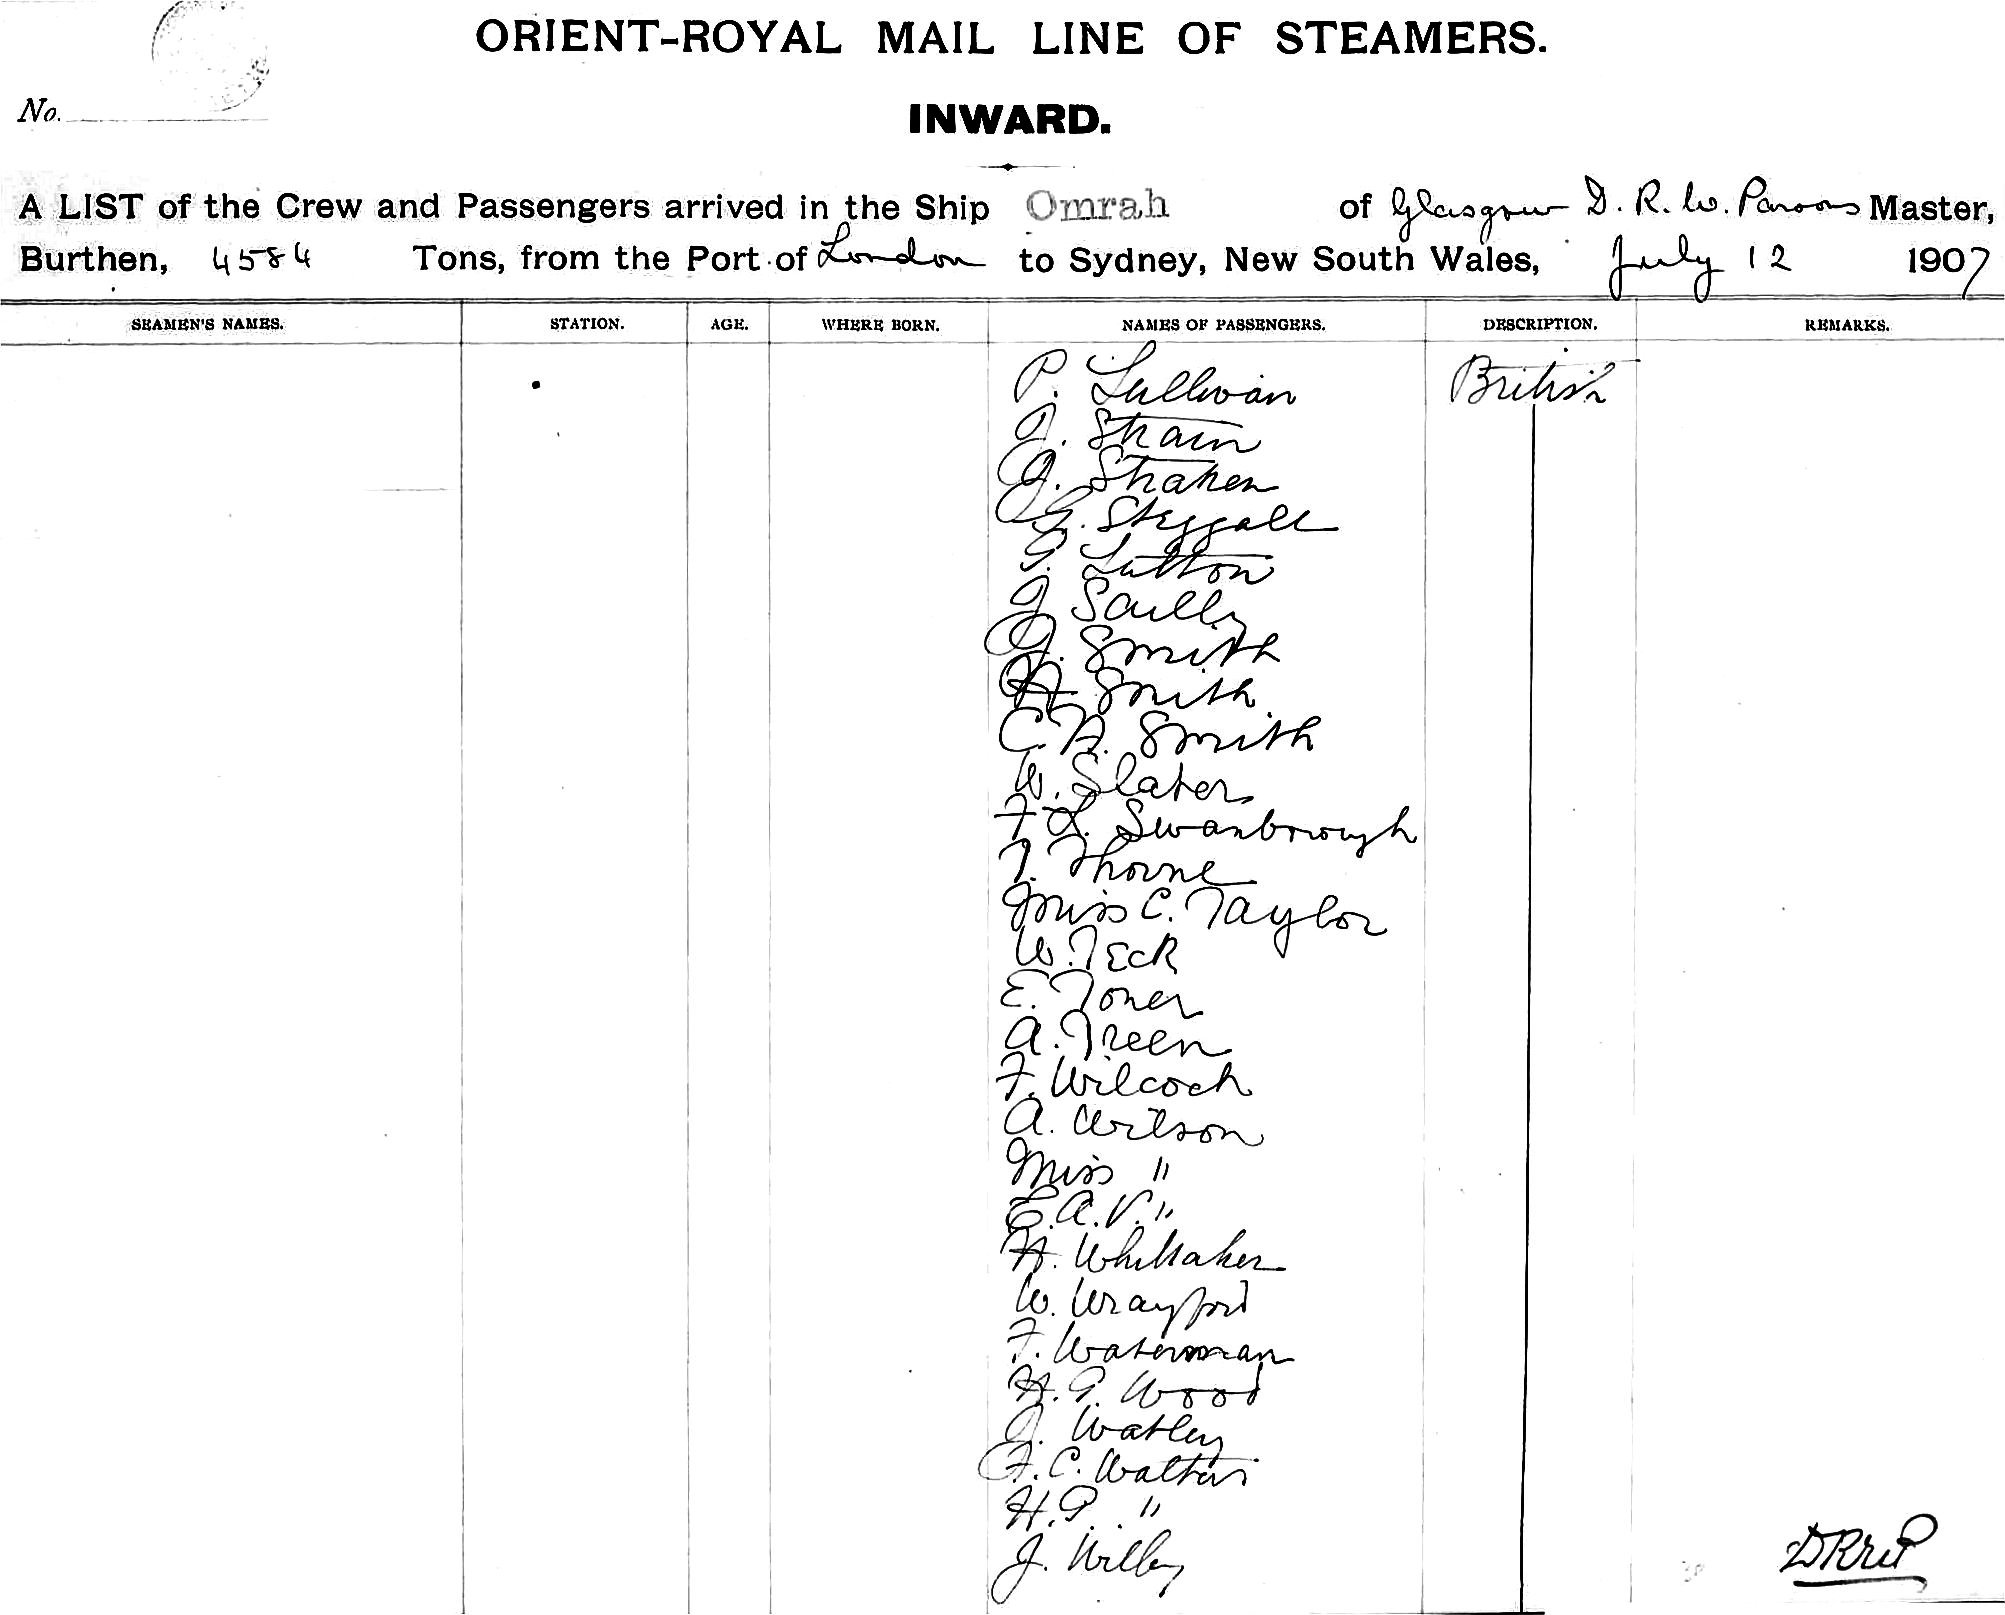 ORIENT-ROYAL MAIL LINE OF STEAMERS.
No.
INWARD.
A LIST of the Crew and Passengers arrived in the Ship Omrah of Glasgow D. R. W. Parsons Master,
Burthen, 4584 Tons, from the Port of London to Sydney, New South Wales, July 12 1907
SEAMEN'S NAMES. STATION. AGE. WHERE BORN. NAMES OF PASSENGERS. DESCRIPTION. REMARKS.
P. Sullivan British
J. Strain
J. Straken
G. Steggall
G. Sutton
J Scully
J. Smith
A Smith
C. A. Smith
W. Slater
F L. Swanbrough
T. Thorne
Miss C. Taylor
W. Teck
E. Toner
A. Treen
F. Wilcock
A. Wilson
Miss "
E. A. V. "
H. Whittaker
W. Wrayford
F. Waterman
H. G. Wood
J. Watley
F. C. Walters
H. P. "
J. Wilby
DRWP